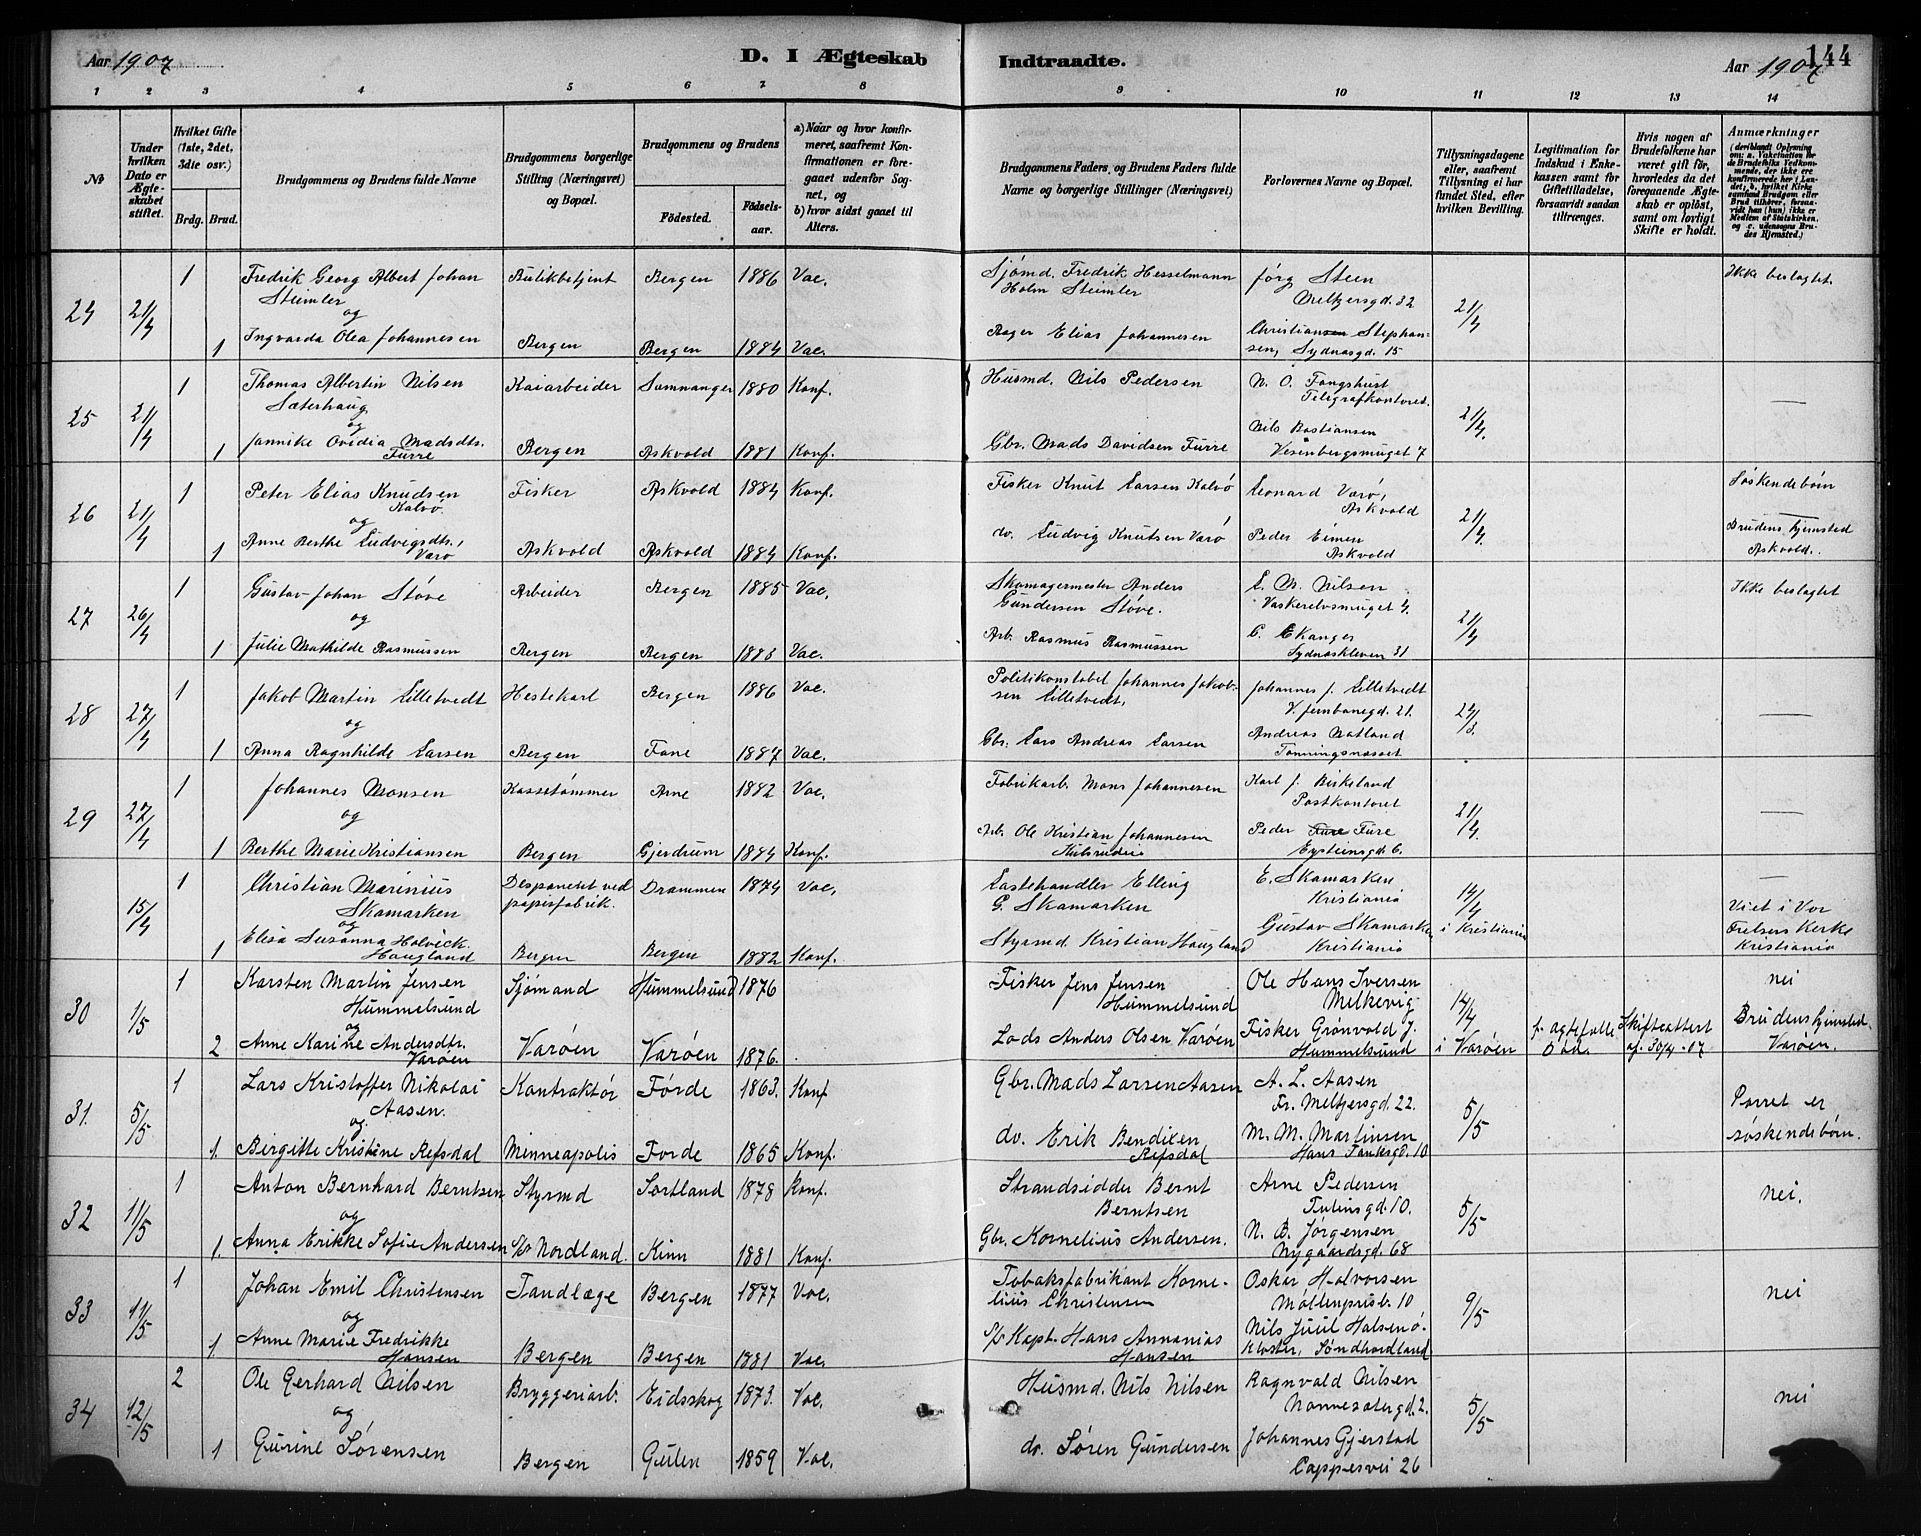 Aar 1907
D. I Ægteskab
Indtraadte.
Aar 1907
144
1 2 3 4 5 6 7 8 9 10 11 12 13 14
No
Under hvilken Dato er Ægteskabet stiftet.
Hvilket Gifte (1ste, 2det, 3die osv.)
Brdg. Brud.
Brudgommens og Brudens fulde Navne
Brudgommens borgerlige Stilling (Næringsvei) og Bopæl.
Brudgommens og Brudens
Fødested.
Fødselsaar.
a) Naar og hvor konfirmeret, saafremt Konfirmationen er foregaaet udenfor Sognet, og
b) hvor sidst gaaet til Alters.
Brudgommens Faders, og Brudens Faders fulde Navne og borgerlige Stillinger (Næringsvei)
Forlovernes Navne og Bopæl.
Tillysningsdagene eller, saafremt Tillysning ei har fundet Sted, efter hvilken Bevilling.
Legitimation for Indskud i Enkekassen samt for Giftetilladelse, forsaavidt saadan tiltrænges.
Hvis nogen af Brudefolkene har været gift før, hvorledes da det foregaaende Ægteskab er opløst, samt om lovligt Skifte er holdt.
Anmærkninger (deriblandt Oplysning om: a. Vakcination for de Brudefolks Vedkommende, der ikke ere konfirmerede her i Landet; b. hvilket Kirkesamfund Brudgom eller Brud tilhører, forsaavidt han (hun) ikke er Medlem af Statskirken, og c. udensogns Brudes Hjemsted.)
24 21/4 1 Fredrik Georg Albert Johan Steimler Butikbetjent Bergen 1886 Vac. Sjømd. Fredrik Hesselmann Holm Steimler Jørg Steen Meltzersgd. 32 21/4 Ikke beslagtet.
og
1 Ingvarda Olea Johannesen Bergen Bergen 1884 Vac. Bager Elias Johannesen Christian Stephansen, Sydnæsgd. 15
25 21/4 1 Thomas Albertin Nilsen Sæterhaug Kaiarbeider Samnanger 1880 Konf. Husmd. Nils Pedersen N. O. Fongshust Telegrafkontoret. 21/4. —
og
1 Jannike Ovidia Madsdtr. Furre Bergen Askvold 1881 Konf. Gbr. Mads Davidsen Furre Nils Bastiansen Vesenbergsmuget 7
26 21/4 1 Peter Elias Knudsen Kalvø Fisker Askvold 1884 Konf. Fisker Knut Larsen Kalvø Leonard Værø, Askvold 21/4. Søskendebørn
og
1 Anne Berthe Ludvigsdtr. Værø Askvold Askvold 1884 Konf. do. Ludvig Knutsen Værø Peder Eimen Askvold Brudens hjemsted Askvold.
27 26/4 1 Gustav Johan Støve Arbeider Bergen 1885 Vac. Skomagermester Anders Gundersen Støve. L. M. Nilsen Vaskerelvsmuget 4. 21/4 Ikke beslagtet
og
1 Julie Mathilde Rasmussen Bergen Bergen 1883 Vac. Arb. Rasmus Rasmussen C. Ekanger Sydnæskleven 31
28 27/4 1 Jakob Martin Lilletvedt Hestekarl Bergen 1886 Vac. Politikonstabel Johannes Jakobsen Lilletvedt, Johannes J. Lilletvedt V. Jernbanegd. 21. 24/3. —
og
1 Anna Ragnhilde Larsen Bergen Fane 1887 Vac. Gbr. Lars Andreas Larsen Andreas Natland Tonningsnæsset
29 27/4 1 Johannes Monsen Kassetømmer Arne 1882 Vac. Fabrikarb. Mons Johannesen Karl J. Birkeland Postkontoret 21/4. —
og
1 Berthe Marie Kristiansen Bergen Gjerdrum 1884 Konf. Arb. Ole Kristian Johannesen Peder Fure Eysteinsgd. 6.
15/4 1 Christian Marinius Skamarken Disponent ved papirfabrik. Drammen 1874 Vac. Lastehandler Elling G. Skamarken E. Skamarken Kristiania 14/4 i Kristiania —
og
1 Elisa Susanna Holvick Haugland Bergen Bergen 1882 Konf. Styrmd. Kristian Haugland Gustav Skamarken Kristiania Viet i Vor Frelsers Kirke Kristiania
30 1/5 1 Karsten Martin Jensen Hummelsund Sjømand Hummelsund 1876 Fisker Jens Jensen Hummelsund Ole Hans Iversen Melkevig 14/4 i Værøen nei
og
2 Anne Karine Andersdtr. Værøen Værøen Værøen 1876. Lods Anders Olsen Værøen Fisker Grønvold J. Hummelsund f. ægtefælle død. Skifteattest af 30/4-07 Brudens hjemsted Værøen.
31. 5/5 1 Lars Kristoffer Nikolai Aasen. Kontraktør Førde 1863. Konf Gbr. Mads Larsen Aasen A. L. Aasen Fr. Meltzersgd. 22. 5/5 Parret er søskendebørn.
og
1. Birgitte Kristine Refsdal Minneapolis Førde 1865 Konf. do. Erik Bendixen Refsdal M. M. Martinsen Hans Tanksgd. 10
32 11/5 1 Anton Bernhard Berntsen Styrmd Sortland 1878 Konf. Strandsidder Bernt Berntsen Arne Pedersen Tulinsgd. 10. 5/5 nei.
og
1 Anna Erikke Sofie Andersen S/s Nordland. Kinn 1881 Konf. Gbr. Kornelius Andersen. N. B. Jørgensen Nygaardsgd. 68
33 11/5 1 Johan Emil Christensen Tandlæge Bergen 1877 Vac. Tobaksfabrikant Kornelius Christensen Oskar Halvorsen Møllenprisb. 10 9/5 nei
og
1. Anne Marie Fredrikke Hansen Bergen Bergen 1881 Vac. S/s Kapt. Hans Annanias Hansen Nils Juul Halsenø-Kloster, Søndhordland
34 12/5 2 Ole Gerhard Nilsen Bryggeriarb. Eidsskog 1873. Vac. Husmd. Nils Nilsen Ragnvald Nilsen Nonnesætergd. 2. 5/5 nei
og
1 Gurine Sørensen Bergen Gulen 1859 Vac. do. Søren Gundersen Johannes Gjerstad Cappesvei 26